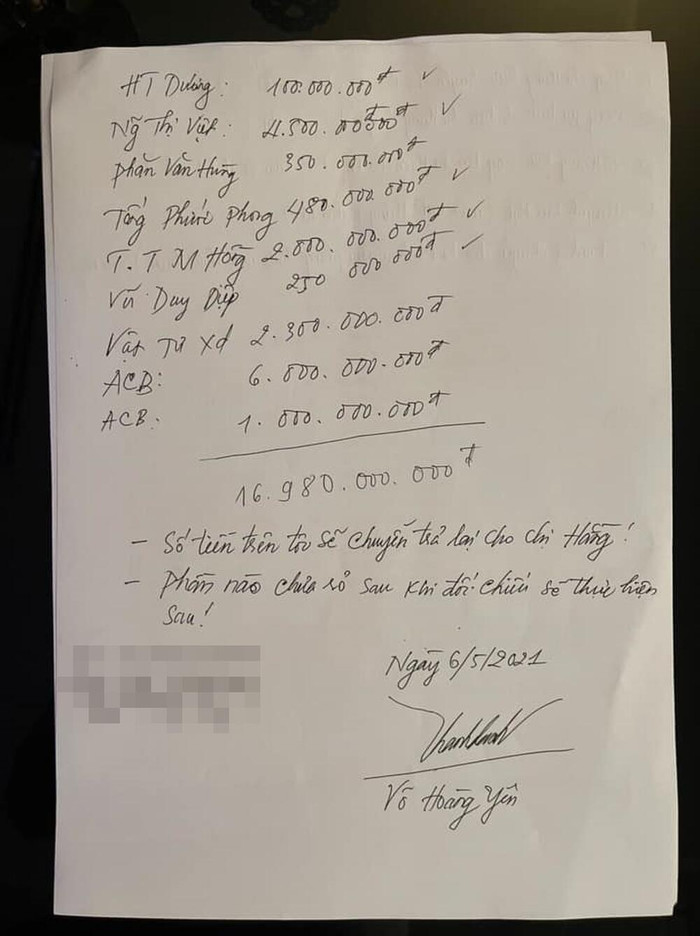 HT Dương: 100.000.000đ ✓
Ng Thị Việt: 4.500.00000đ ✓
Phan Văn Hùng 350.000.000đ
Tống Phước Phong 480.000.000đ ✓
T.T M Hồng 2.000.000.000đ ✓
Vũ Duy Điệp 250 000 000đ ✓
Vật Tư Xd 2.300.000.000đ
ACB: 6.000.000.000đ
ACB: 1.000.000.000đ
16.980.000.000đ
- Số tiền trên tôi sẽ chuyển trả lại cho chị Hằng!
- Phần nào chưa rỏ sau khi đối chiếu sẽ thực hiện
sau!
Ngày 6/5/2021
Võ Hoàng Yên